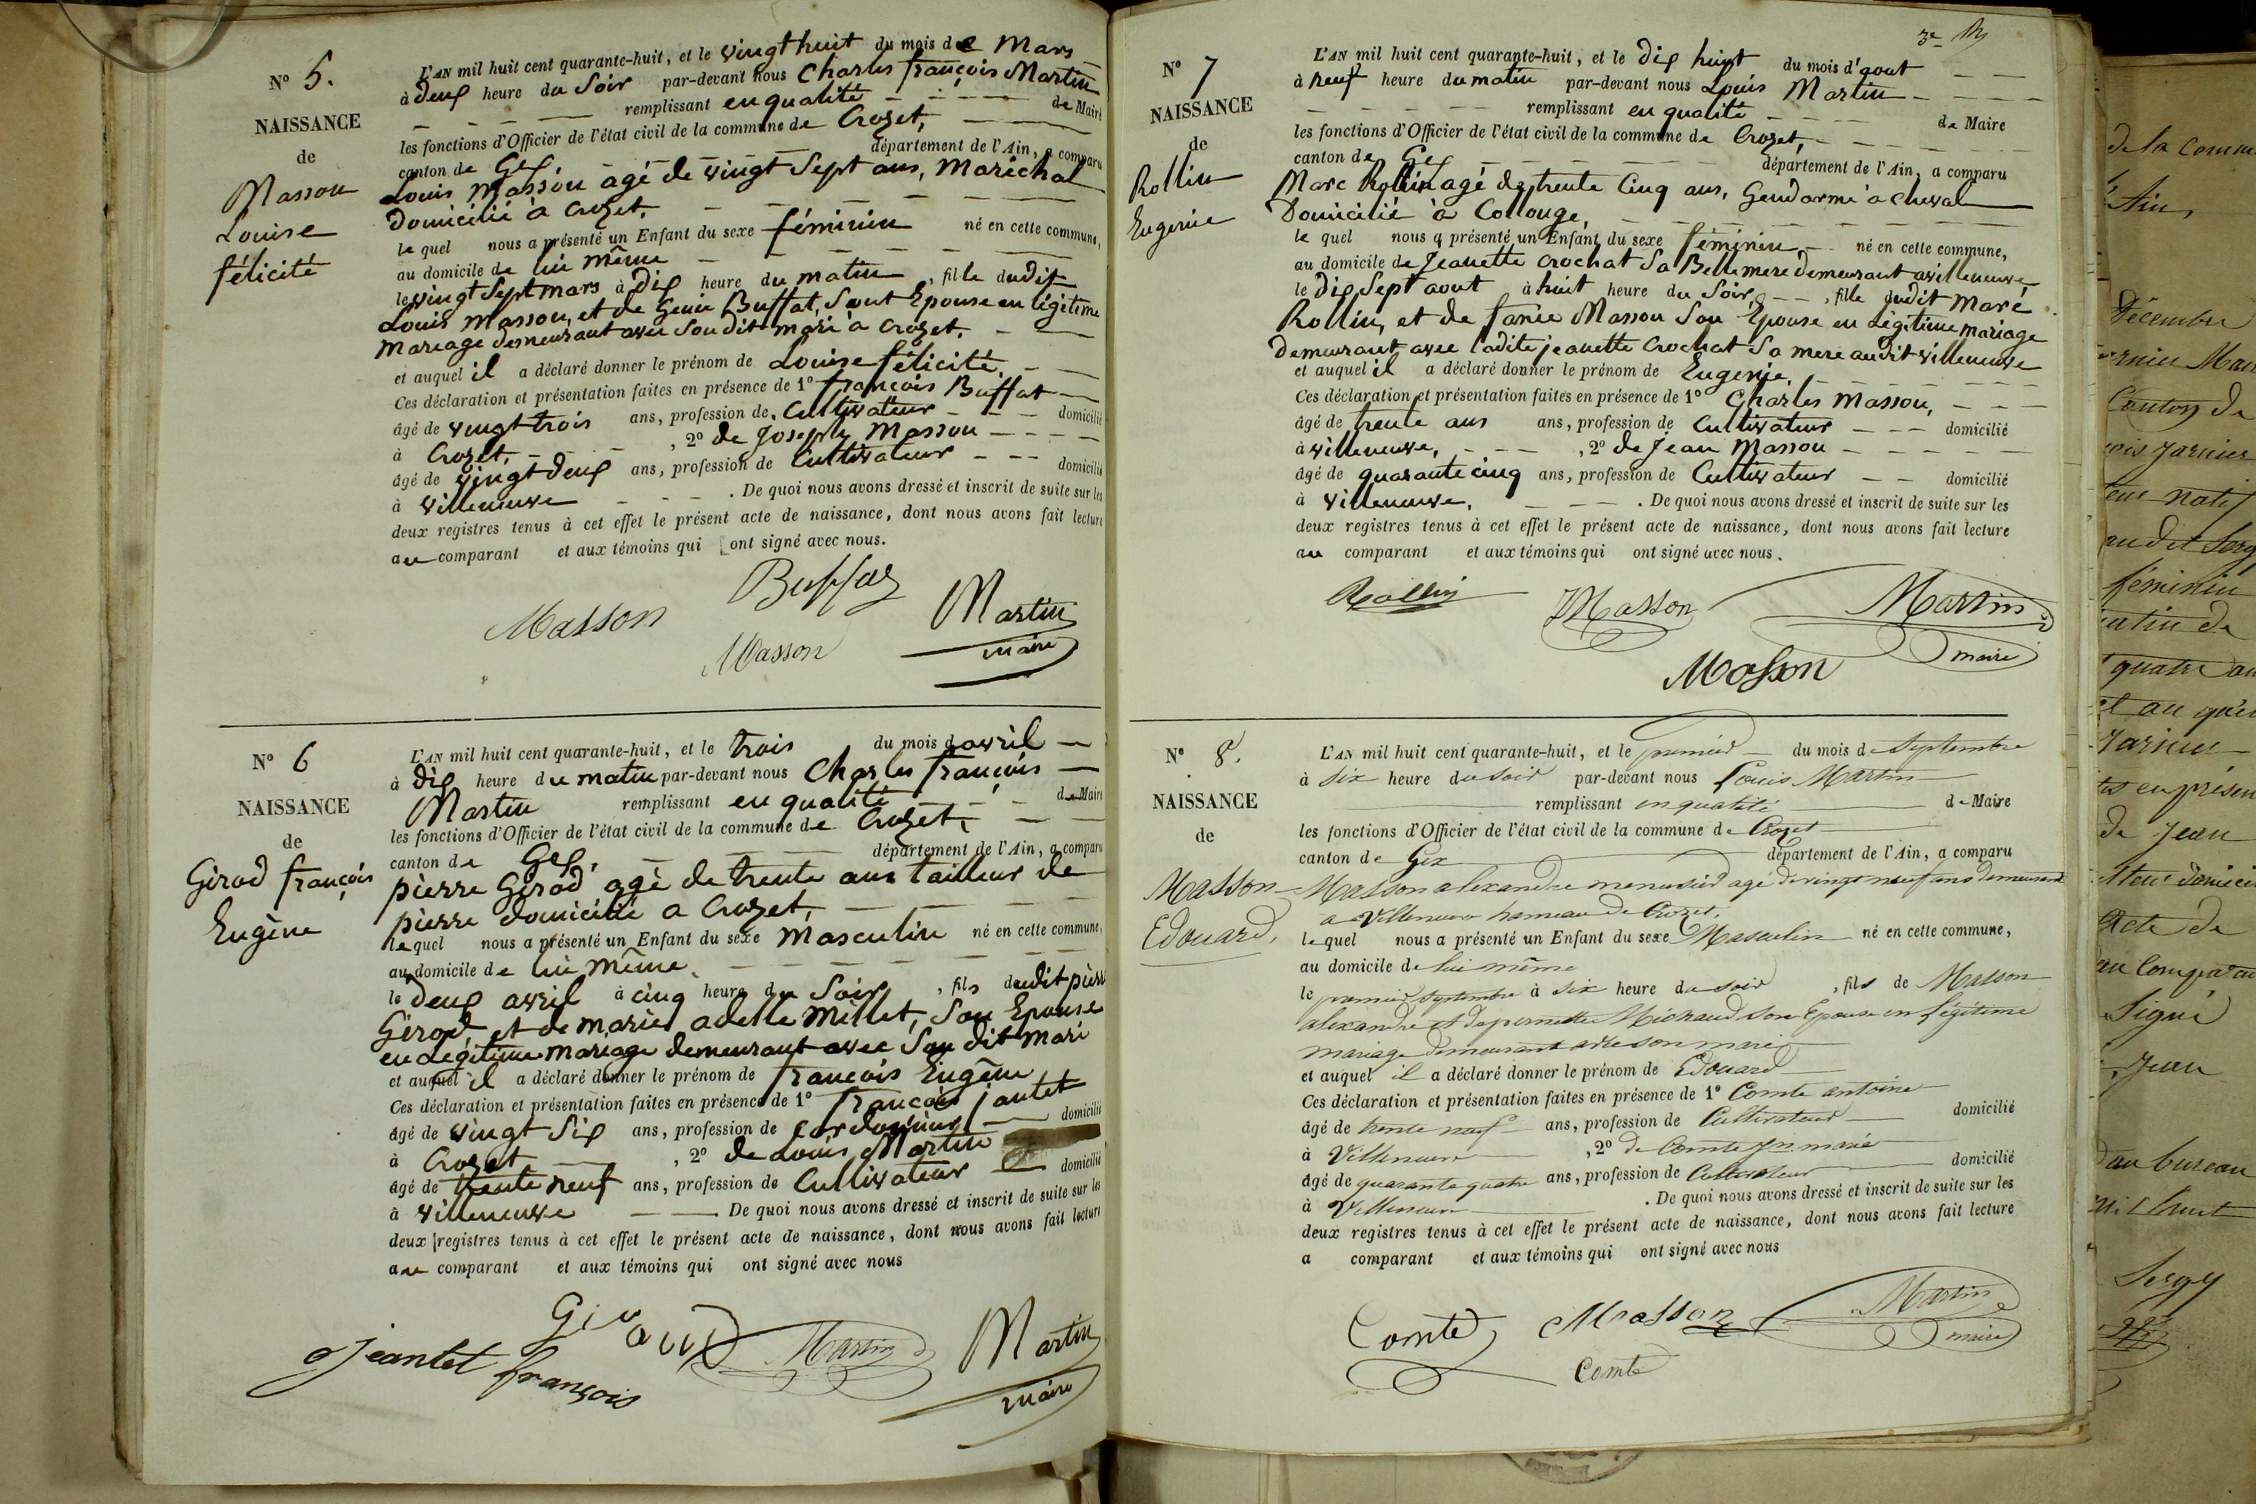 N° 5.
NAISSANCE
de
Masson
Louise
félicité
L'AN mil huit cent quarante-huit, et le vingt huit du mois de Mars
à deux heure du Soir par-devant nous Charles françois Martin
remplissant en qualité de Maire
les fonctions d'Officier de l'état civil de la commune de Crozet,
canton de Gex, département de l'Ain, a comparu
Louis Masson agé de vingt Sept ans, Maréchal
Domicilié à Crozet.
lequel nous a présenté un Enfant du sexe féminin né en cette commune,
au domicile de lui même
le vingt Sept mars à dix heure du matin, fille dudit
Louis Masson, et de Genie Buffat, Sont Epouse en légitime
Mariage demeurant avec Son dit mari à Crozet.
et auquel il a déclaré donner le prénom de Louise félicité.
Ces déclaration et présentation faites en présence de 1° françois Buffat
âgé de vingt trois ans, profession de Cultivateur domicilié
à Crozet, 2° de Joseph Masson
âgé de vingt deux ans, profession de Cultivateur domicilié
à villeneuve. De quoi nous avons dressé et inscrit de suite sur les
deux registres tenus à cet effet le présent acte de naissance, dont nous avons fait lecture
au comparant et aux témoins qui ont signé avec nous.
Buffat
Masson
Martin
Masson
maire
N° 6
NAISSANCE
de
Girod françois
Eugène
L'AN mil huit cent quarante-huit, et le trois du mois d'avril
à dix heure du matin par-devant nous Charles françois
Martin remplissant en qualité de Maire
les fonctions d'Officier de l'état civil de la commune de Crozet,
canton de Gex, département de l'Ain, a comparu
pierre Girod agé de trente ans tailleur de
pierre domicilié a Crozet,
lequel nous a présenté un Enfant du sexe Masculin né en cette commune,
au domicile de lui même,
le deux avril à cinq heure du Soir, fils dudit pierre
Girod, et de marie adelle Millet, Son Epouse
en Légitime mariage demeurant avec Son dit mari
et auquel il a déclaré donner le prénom de françois Eugène
Ces déclaration et présentation faites en présence de 1° françois jantet
âgé de vingt Six ans, profession de Cordonnier domicilié
à Crozet, 2° de Louis Martin
âgé de trente neuf ans, profession de Cultivateur domicilié
à villeneuve De quoi nous avons dressé et inscrit de suite sur les
deux registres tenus à cet effet le présent acte de naissance, dont nous avons fait lecture
au comparant et aux témoins qui ont signé avec nous
Giraud
Jeantet françois
Martin
Martin
maire
3e
N° 7
NAISSANCE
de
Rollin
Eugenie
L'AN mil huit cent quarante-huit, et le dix huit du mois d'aout
à neuf heure du matin par-devant nous Louis Martin
remplissant en qualité de Maire
les fonctions d'Officier de l'état civil de la commune de Crozet,
canton de Gex département de l'Ain, a comparu
Marc Rollin agé de trente Cinq ans, Gendarme à cheval
Domicilié à Collonge,
lequel nous a présenté un Enfant du sexe féminin né en cette commune,
au domicile de Jeanette Crochat Sa Belle mere demeurant a villeneuve
le dix Sept aout à huit heure du Soir, fille dudit Marc
Rollin, et de fanie Masson Son Epouse en Légitime mariage
demeurant avec ladite jeanette Crochat Sa mere audit villeneuve
et auquel il a déclaré donner le prénom de Eugenie,
Ces déclaration et présentation faites en présence de 1° Charles Masson,
âgé de trente ans ans, profession de Cultivateur domicilié
à villeneuve, 2° de Jean Masson
âgé de quarante cinq ans, profession de Cultivateur domicilié
à villeneuve. De quoi nous avons dressé et inscrit de suite sur les
deux registres tenus à cet effet le présent acte de naissance, dont nous avons fait lecture
au comparant et aux témoins qui ont signé avec nous.
Rollin
Masson
Martin
maire
Masson
N° 8.
NAISSANCE
de
Masson
Edouard,
L'AN mil huit cent quarante-huit, et le premier du mois de Septembre
à six heure du soir par-devant nous Louis Martin
remplissant en qualité de Maire
les fonctions d'Officier de l'état civil de la commune de Crozet
canton de Gex département de l'Ain, a comparu
Masson alexandre menuisier agé de vingt neuf ans demeurant
a Villeneuve hameau de Crozet,
lequel nous a présenté un Enfant du sexe Masculin né en cette commune,
au domicile de lui même
le premier septembre à six heure du soir, fils de Masson
alexandre et de pernette Michaud son Epouse en légitime
mariage demeurant avec son mari
et auquel il a déclaré donner le prénom de Edouard
Ces déclaration et présentation faites en présence de 1° Comte antoine
âgé de trente neuf ans, profession de Cultivateur domicilié
à Villeneuve, 2° de Comte Jn marie
âgé de quarante quatre ans, profession de Cultivateur domicilié
à Villeneuve. De quoi nous avons dressé et inscrit de suite sur les
deux registres tenus à cet effet le présent acte de naissance, dont nous avons fait lecture
a comparant et aux témoins qui ont signé avec nous
Comte
Masson
Martin
maire
Comte
de la comm
Ain,
Décembre
Canton de
natif
audit Serg
féminin
quatre
en présen
de Jean
acte de
au comparan
Signé
Jean
au bureau
Sergy